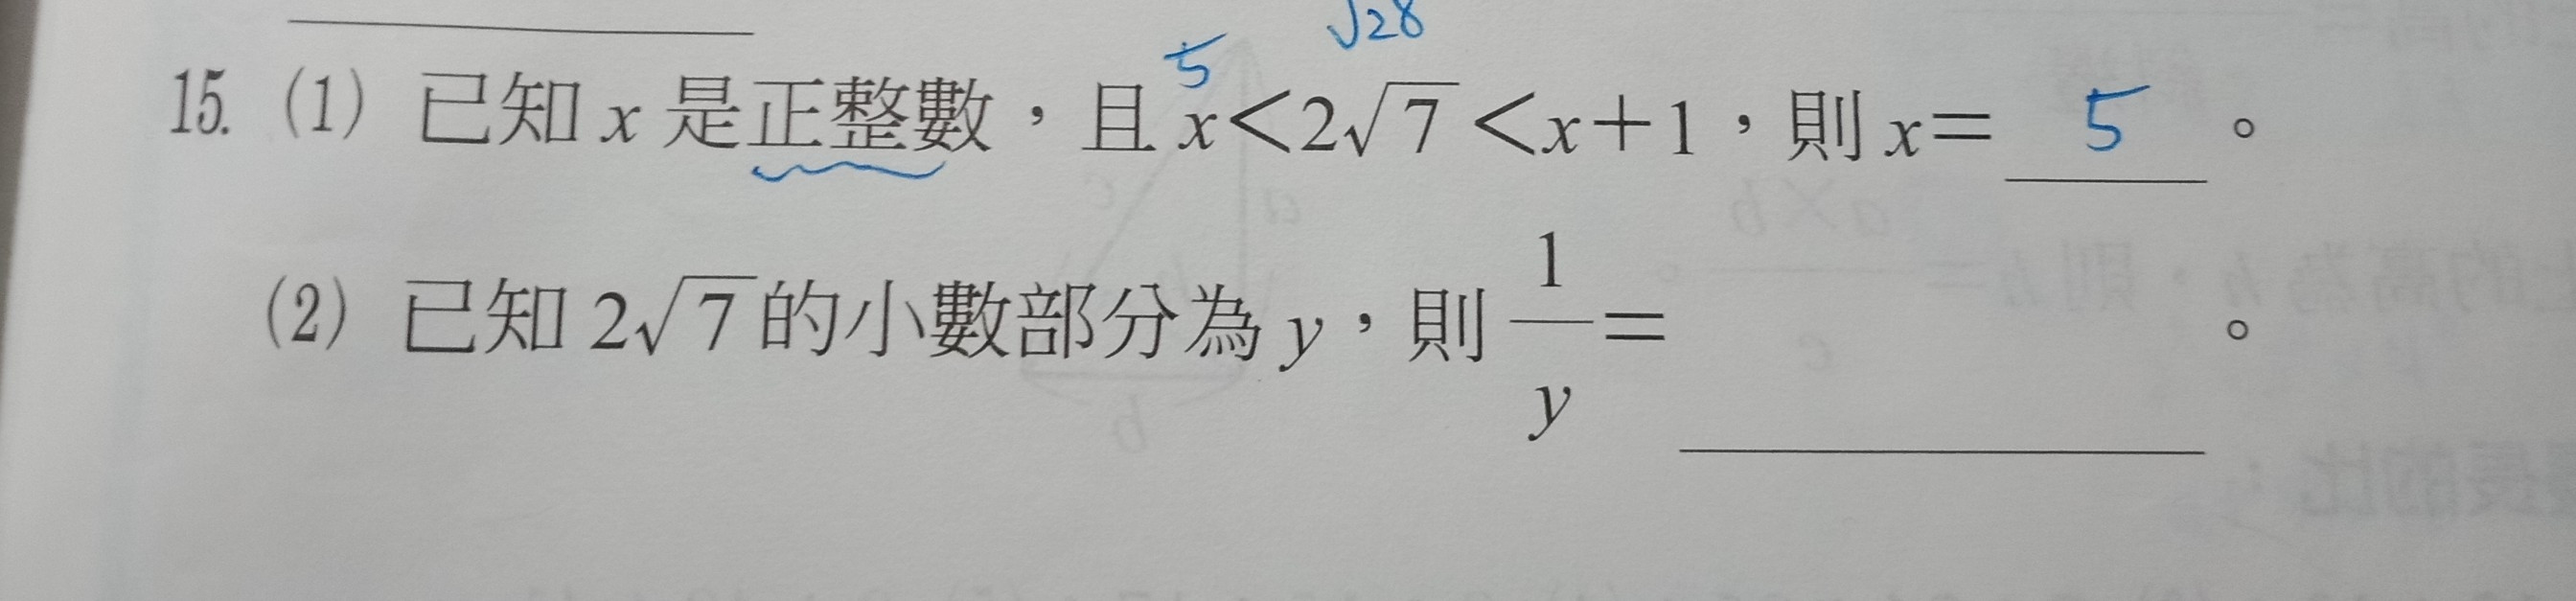 √28
5
15. (1) 已知 x 是正整數，且 x<2√7<x+1，則 x= 5 。
(2) 已知 2√7 的小數部分為 y，則 1/y = 。